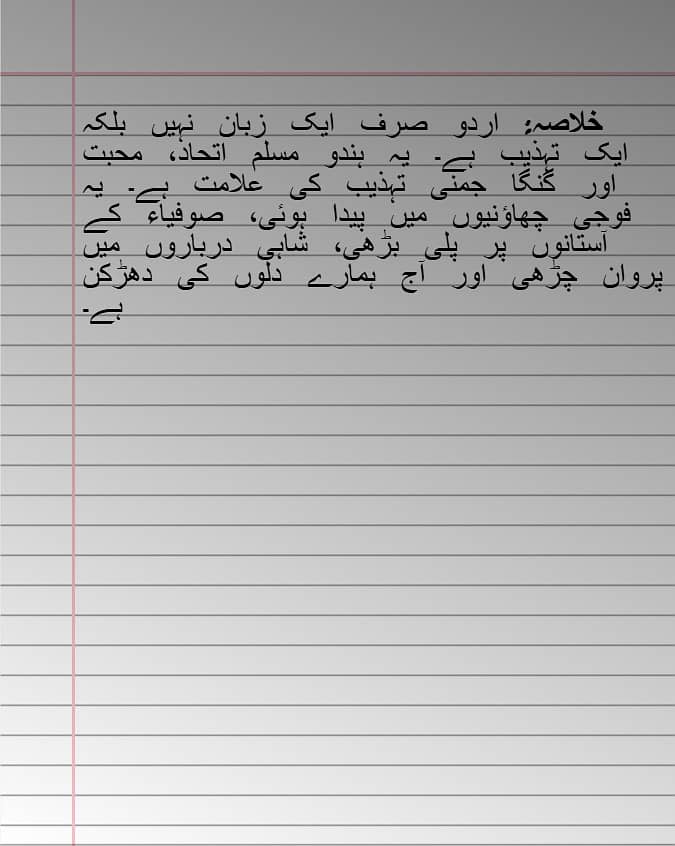 خلاصہ: اردو صرف ایک زبان نہیں بلکہ
ایک تہذیب ہے۔ یہ ہندو مسلم اتحاد، محبت
اور گنگا جمنی تہذیب کی علامت ہے۔ یہ
فوجی چھاؤنیوں میں پیدا ہوئی، صوفیاء کے
آستانوں پر پلی بڑھی، شاہی درباروں میں
پروان چڑھی اور آج ہمارے دلوں کی دھڑکن
ہے۔